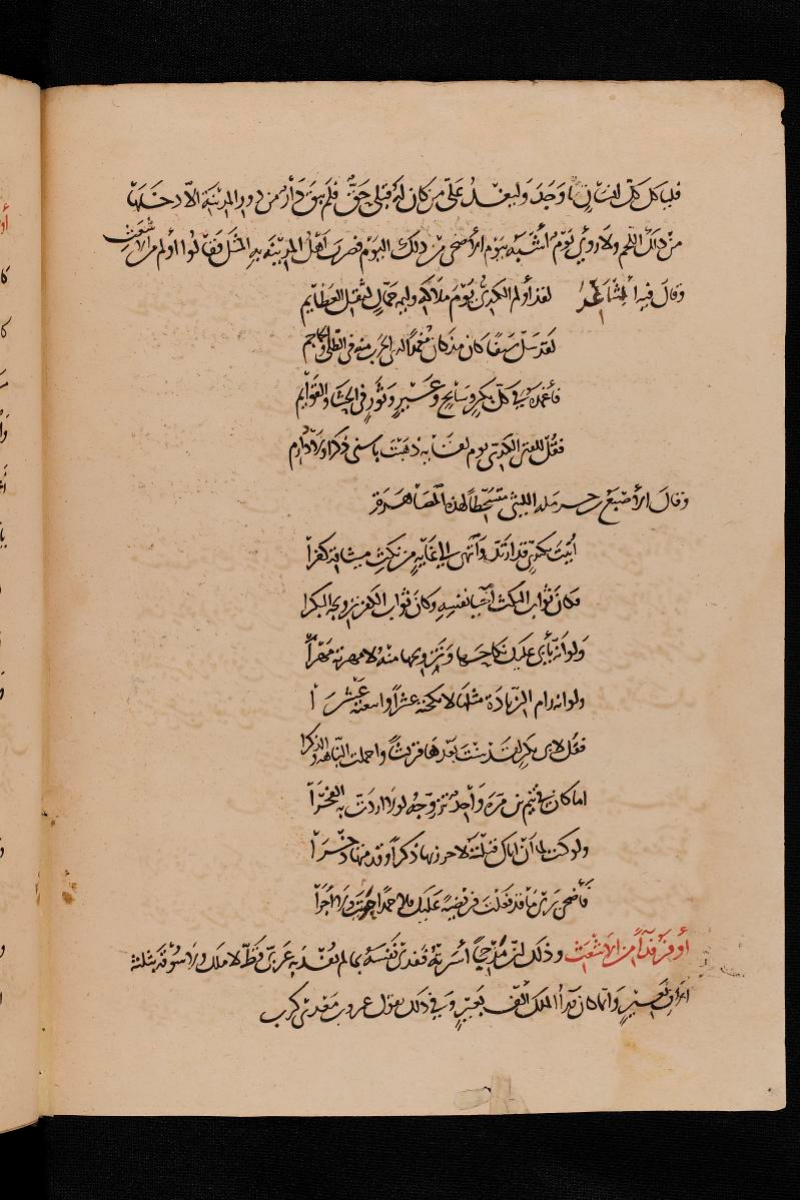 فلياكل كل انسان ما وجد وليغد علي من كان له قبلي حق فلم يبق دار من دور المدينة الا دخلها
من ذلك اللحم ولا رؤي يوم اشبه بيوم الاضحى من ذلك اليوم فضرب اهل المدينة به المثل فقالوا اولم من الاشعث
وقال فيه الشاعر لقد أولم الكندي يوم ملاكه وليمة حمال لثقل العظايم
لقد سل سيفا كان مذ كان مغمدا لدى الحرب منه في الطلى والجماجم
فأغمده في كل بكر وسابح وعير وثور في الحشا والقوايم
فقل للفتى الكندي يوم لقائه ذهبت باسنى ذكر اولاد ادم
وقال الاصبغ بن حرملة الليثي متسخطا لهذه المصاهرة
أتيت بكندي قد ارتد وانتهى الى غاية من نكث ميثاقه كفرا
فكان ثواب النكث احيا نفسه وكان ثواب الكفر تزويجه البكرا
ولو انه يأبى عليك نكاحها وتزويجها منه لامهرته مهرا
ولو انه رام الزيادة مثلها لانكحته عشرا واتبعته عشرا
فقل لابي بكر لقد شنت بعدها قريشا واخملت النباهة والذكرا
اما كان في تيم بن مرة واحد تزوجه لولا اردت به الفخرا
ولو كنت لما أن اتاك قتلته لاحرزتها ذكرا وقدمتها ذخرا
فأضحى يرى ما قد فعلت فريضة عليك فلا حمدا حويت ولا اجرا
أوفر فداء من الاشعث وذلك ان مذحجا أسرته ففدى نفسه بما لم يفد به عربي قط لا ملك ولا سوقة بثلثة
الاف بعير وانما كان فداء الملك الف بعير وفي ذلك يقول عمرو بن معدي كرب